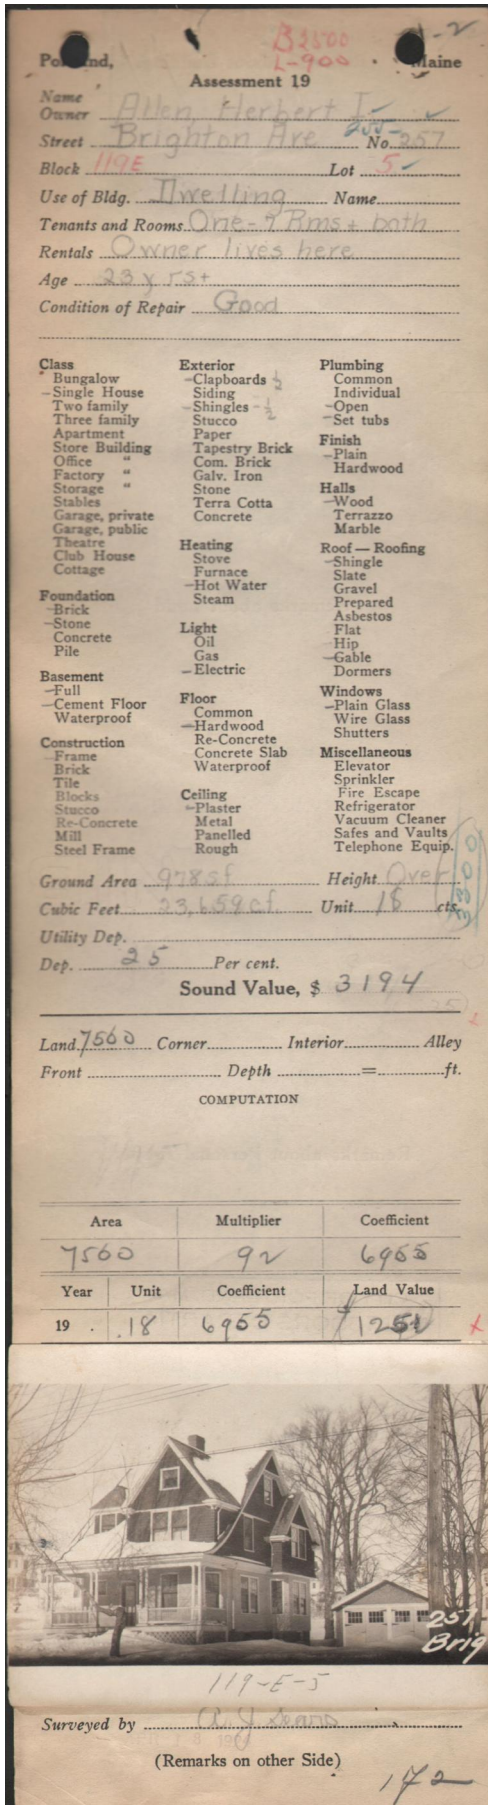 B 2500
L-900
-2
Portland, Maine
Assessment 19
Name
Owner Allen, Herbert
Street Brighton Ave 255- No. 257
Block 119E Lot 5
Use of Bldg. Dwelling Name
Tenants and Rooms One-7 Rms + bath
Rentals Owner lives here
Age 23 yrs+
Condition of Repair Good
Class
Bungalow
- Single House
Two family
Three family
Apartment
Store Building
Office "
Factory "
Storage "
Stables
Garage, private
Garage, public
Theatre
Club House
Cottage
Foundation
- Brick
- Stone
Concrete
Pile
Basement
- Full
- Cement Floor
Waterproof
Construction
- Frame
Brick
Tile
Blocks
Stucco
Re-Concrete
Mill
Steel Frame
Exterior
- Clapboards ½
Siding
- Shingles - ½
Stucco
Paper
Tapestry Brick
Com. Brick
Galv. Iron
Stone
Terra Cotta
Concrete
Heating
Stove
Furnace
- Hot Water
Steam
Light
Oil
Gas
- Electric
Floor
Common
- Hardwood
Re-Concrete
Concrete Slab
Waterproof
Ceiling
- Plaster
Metal
Panelled
Rough
Plumbing
Common
Individual
- Open
- Set tubs
Finish
- Plain
Hardwood
Halls
- Wood
Terrazzo
Marble
Roof — Roofing
- Shingle
Slate
Gravel
Prepared
Asbestos
Flat
Hip
- Gable
Dormers
Windows
- Plain Glass
Wire Glass
Shutters
Miscellaneous
Elevator
Sprinkler
Fire Escape
Refrigerator
Vacuum Cleaner
Safes and Vaults
Telephone Equip.
3300
Ground Area 978 sf Height Over
Cubic Feet 23,659 cf. Unit 18 cts.
Utility Dep.
Dep. 25 Per cent.
Sound Value, $ 3194
Land 7560 Corner Interior Alley
Front Depth = ft.
COMPUTATION
Area Multiplier Coefficient
7560 92 6955
Year Unit Coefficient Land Value
19 . .18 6955 1251
257
Brig
119-E-5
Surveyed by R. J. Sears
(Remarks on other Side)
172